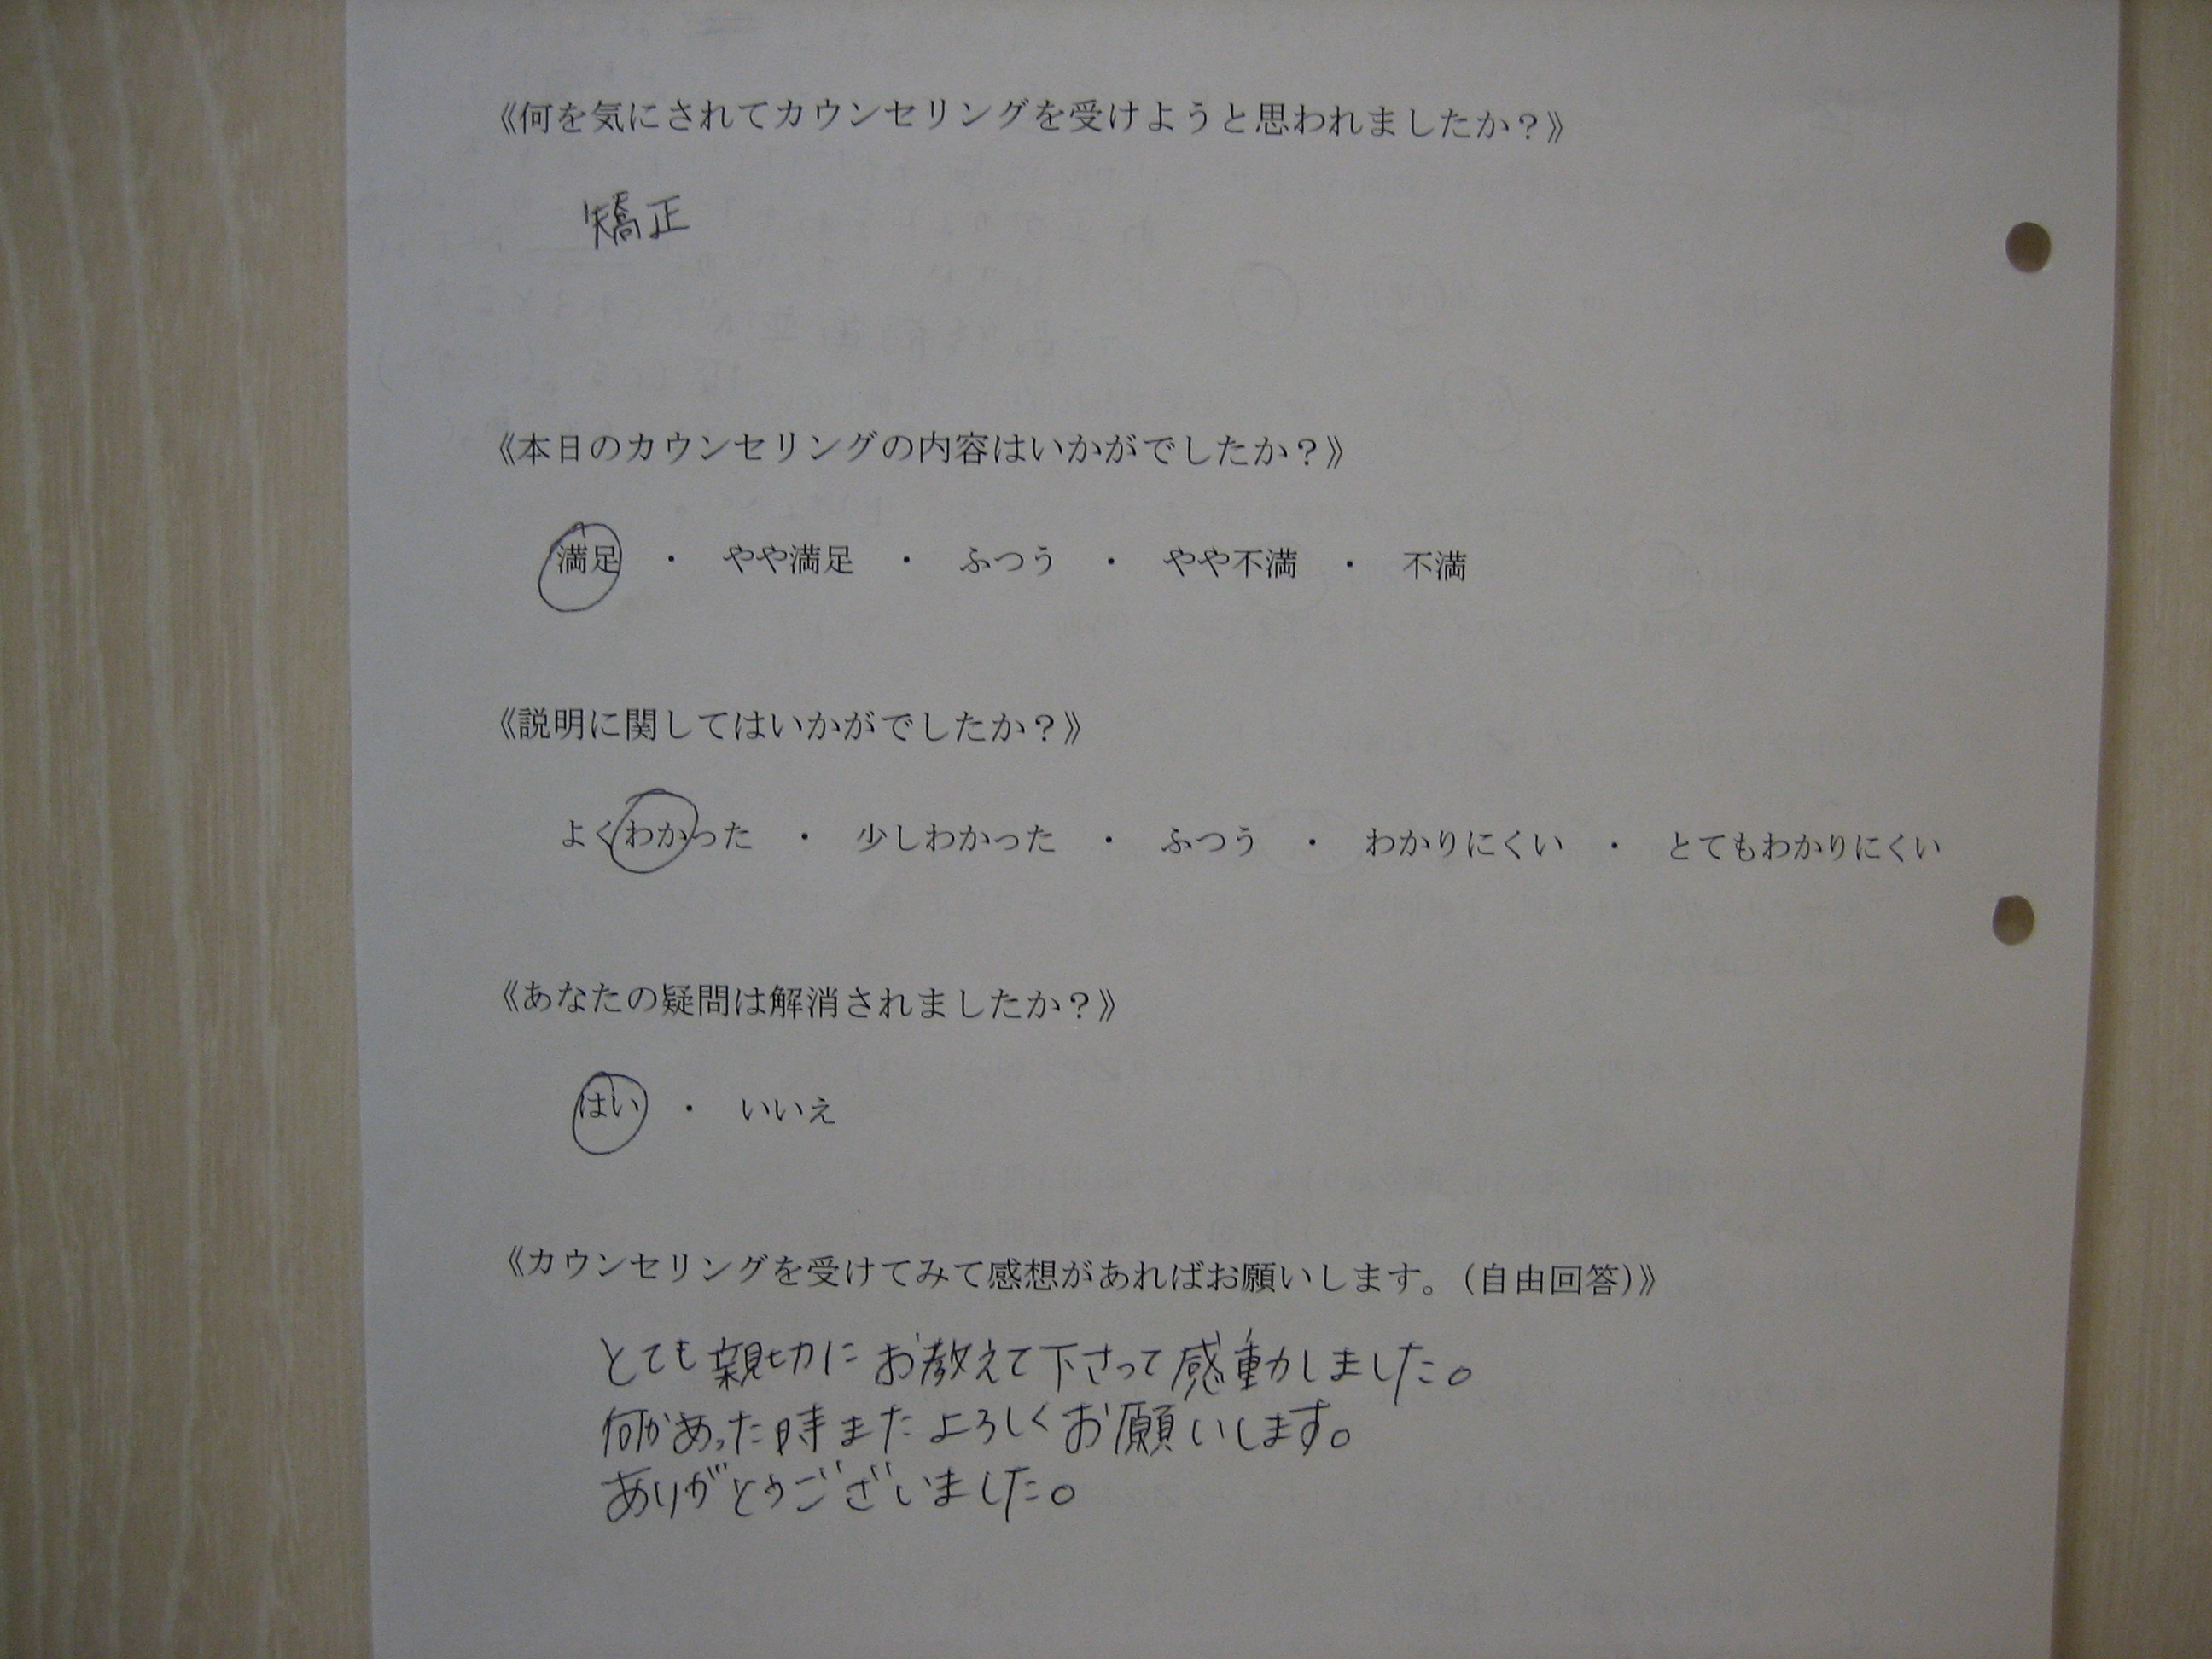 《何を気にされてカウンセリングを受けようと思われましたか？》
矯正
《本日のカウンセリングの内容はいかがでしたか？》
満足 ・ やや満足 ・ ふつう ・ やや不満 ・ 不満
《説明に関してはいかがでしたか？》
よくわかった ・ 少しわかった ・ ふつう ・ わかりにくい ・ とてもわかりにくい
《あなたの疑問は解消されましたか？》
はい ・ いいえ
《カウンセリングを受けてみて感想があればお願いします。（自由回答）》
とても親切にお教えて下さって感動しました。
何かあった時またよろしくお願いします。
ありがとうございました。